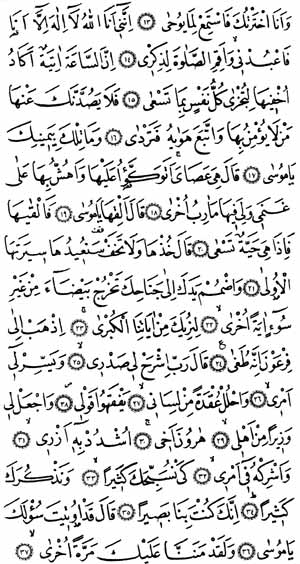 وَاَنَا اخْتَرْتُكَ فَاسْتَمِعْ لِمَا يُوحٰى ﴿١٣﴾ اِنَّنِٓي اَنَا اللّٰهُ لَٓا اِلٰهَ اِلَّٓا اَنَا۬
فَاعْبُدْنِي وَاَقِمِ الصَّلٰوةَ لِذِكْرِي ﴿١٤﴾ اِنَّ السَّاعَةَ اٰتِيَةٌ اَكَادُ
اُخْفِيهَا لِتُجْزٰى كُلُّ نَفْسٍ بِمَا تَسْعٰى ﴿١٥﴾ فَلَا يَصُدَّنَّكَ عَنْهَا
مَنْ لَا يُؤْمِنُ بِهَا وَاتَّبَعَ هَوٰيهُ فَتَرْدٰى ﴿١٦﴾ وَمَا تِلْكَ بِيَمِينِكَ
يَا مُوسٰى ﴿١٧﴾ قَالَ هِيَ عَصَايَ اَتَوَكَّؤُ۬ا عَلَيْهَا وَاَهُشُّ بِهَا عَلٰى
غَنَمِي وَلِيَ فِيهَا مَاٰرِبُ اُخْرٰى ﴿١٨﴾ قَالَ اَلْقِهَا يَا مُوسٰى ﴿١٩﴾ فَاَلْقٰيهَا
فَاِذَا هِيَ حَيَّةٌ تَسْعٰى ﴿٢٠﴾ قَالَ خُذْهَا وَلَا تَخَفْ سَنُعِيدُهَا سِيرَتَهَا
الْاُولٰى ﴿٢١﴾ وَاضْمُمْ يَدَكَ اِلٰى جَنَاحِكَ تَخْرُجْ بَيْضَٓاءَ مِنْ غَيْرِ
سُٓوءٍ اٰيَةً اُخْرٰى ﴿٢٢﴾ لِنُرِيَكَ مِنْ اٰيَاتِنَا الْكُبْرٰى ﴿٢٣﴾ اِذْهَبْ اِلٰى
فِرْعَوْنَ اِنَّهُ طَغٰى ﴿٢٤﴾ قَالَ رَبِّ اشْرَحْ لِي صَدْرِي ﴿٢٥﴾ وَيَسِّرْ لِٓي
اَمْرِي ﴿٢٦﴾ وَاحْلُلْ عُقْدَةً مِنْ لِسَانِي ﴿٢٧﴾ يَفْقَهُوا قَوْلِي ﴿٢٨﴾ وَاجْعَلْ لِي
وَزِيرًا مِنْ اَهْلِي ﴿٢٩﴾ هٰرُونَ اَخِي ﴿٣٠﴾ اُشْدُدْ بِهِٓ اَزْرِي ﴿٣١﴾
وَاَشْرِكْهُ فِٓي اَمْرِي ﴿٣٢﴾ كَيْ نُسَبِّحَكَ كَثِيرًا ﴿٣٣﴾ وَنَذْكُرَكَ
كَثِيرًا ﴿٣٤﴾ اِنَّكَ كُنْتَ بِنَا بَصِيرًا ﴿٣٥﴾ قَالَ قَدْ اُو۫تِيتَ سُؤْلَكَ
يَا مُوسٰى ﴿٣٦﴾ وَلَقَدْ مَنَنَّا عَلَيْكَ مَرَّةً اُخْرٰى ﴿٣٧﴾